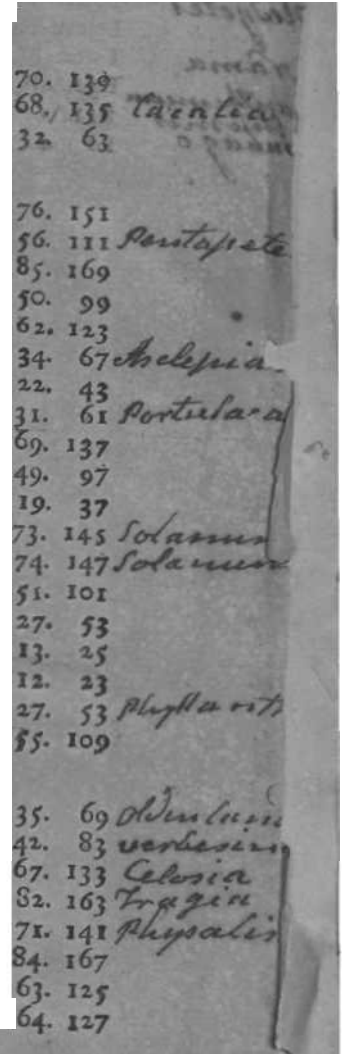 70. 139
68. 135 Cacalia
32. 63
76. 151
56. 111 Pentapete
85. 169
50. 99
62. 123
34. 67 Asclepia
22. 43
31. 61 Portulaca
69. 137
49. 97
19. 37
73. 145 Solanum
74. 147 Solanum
51. 101
27. 53
13. 25
12. 23
27. 53 Phyllanth
55. 109
35. 69 oldenland
42. 83 verbesin
67. 133 Celosia
82. 163 Tragia
71. 141 Physalis
84. 167
63. 125
64. 127